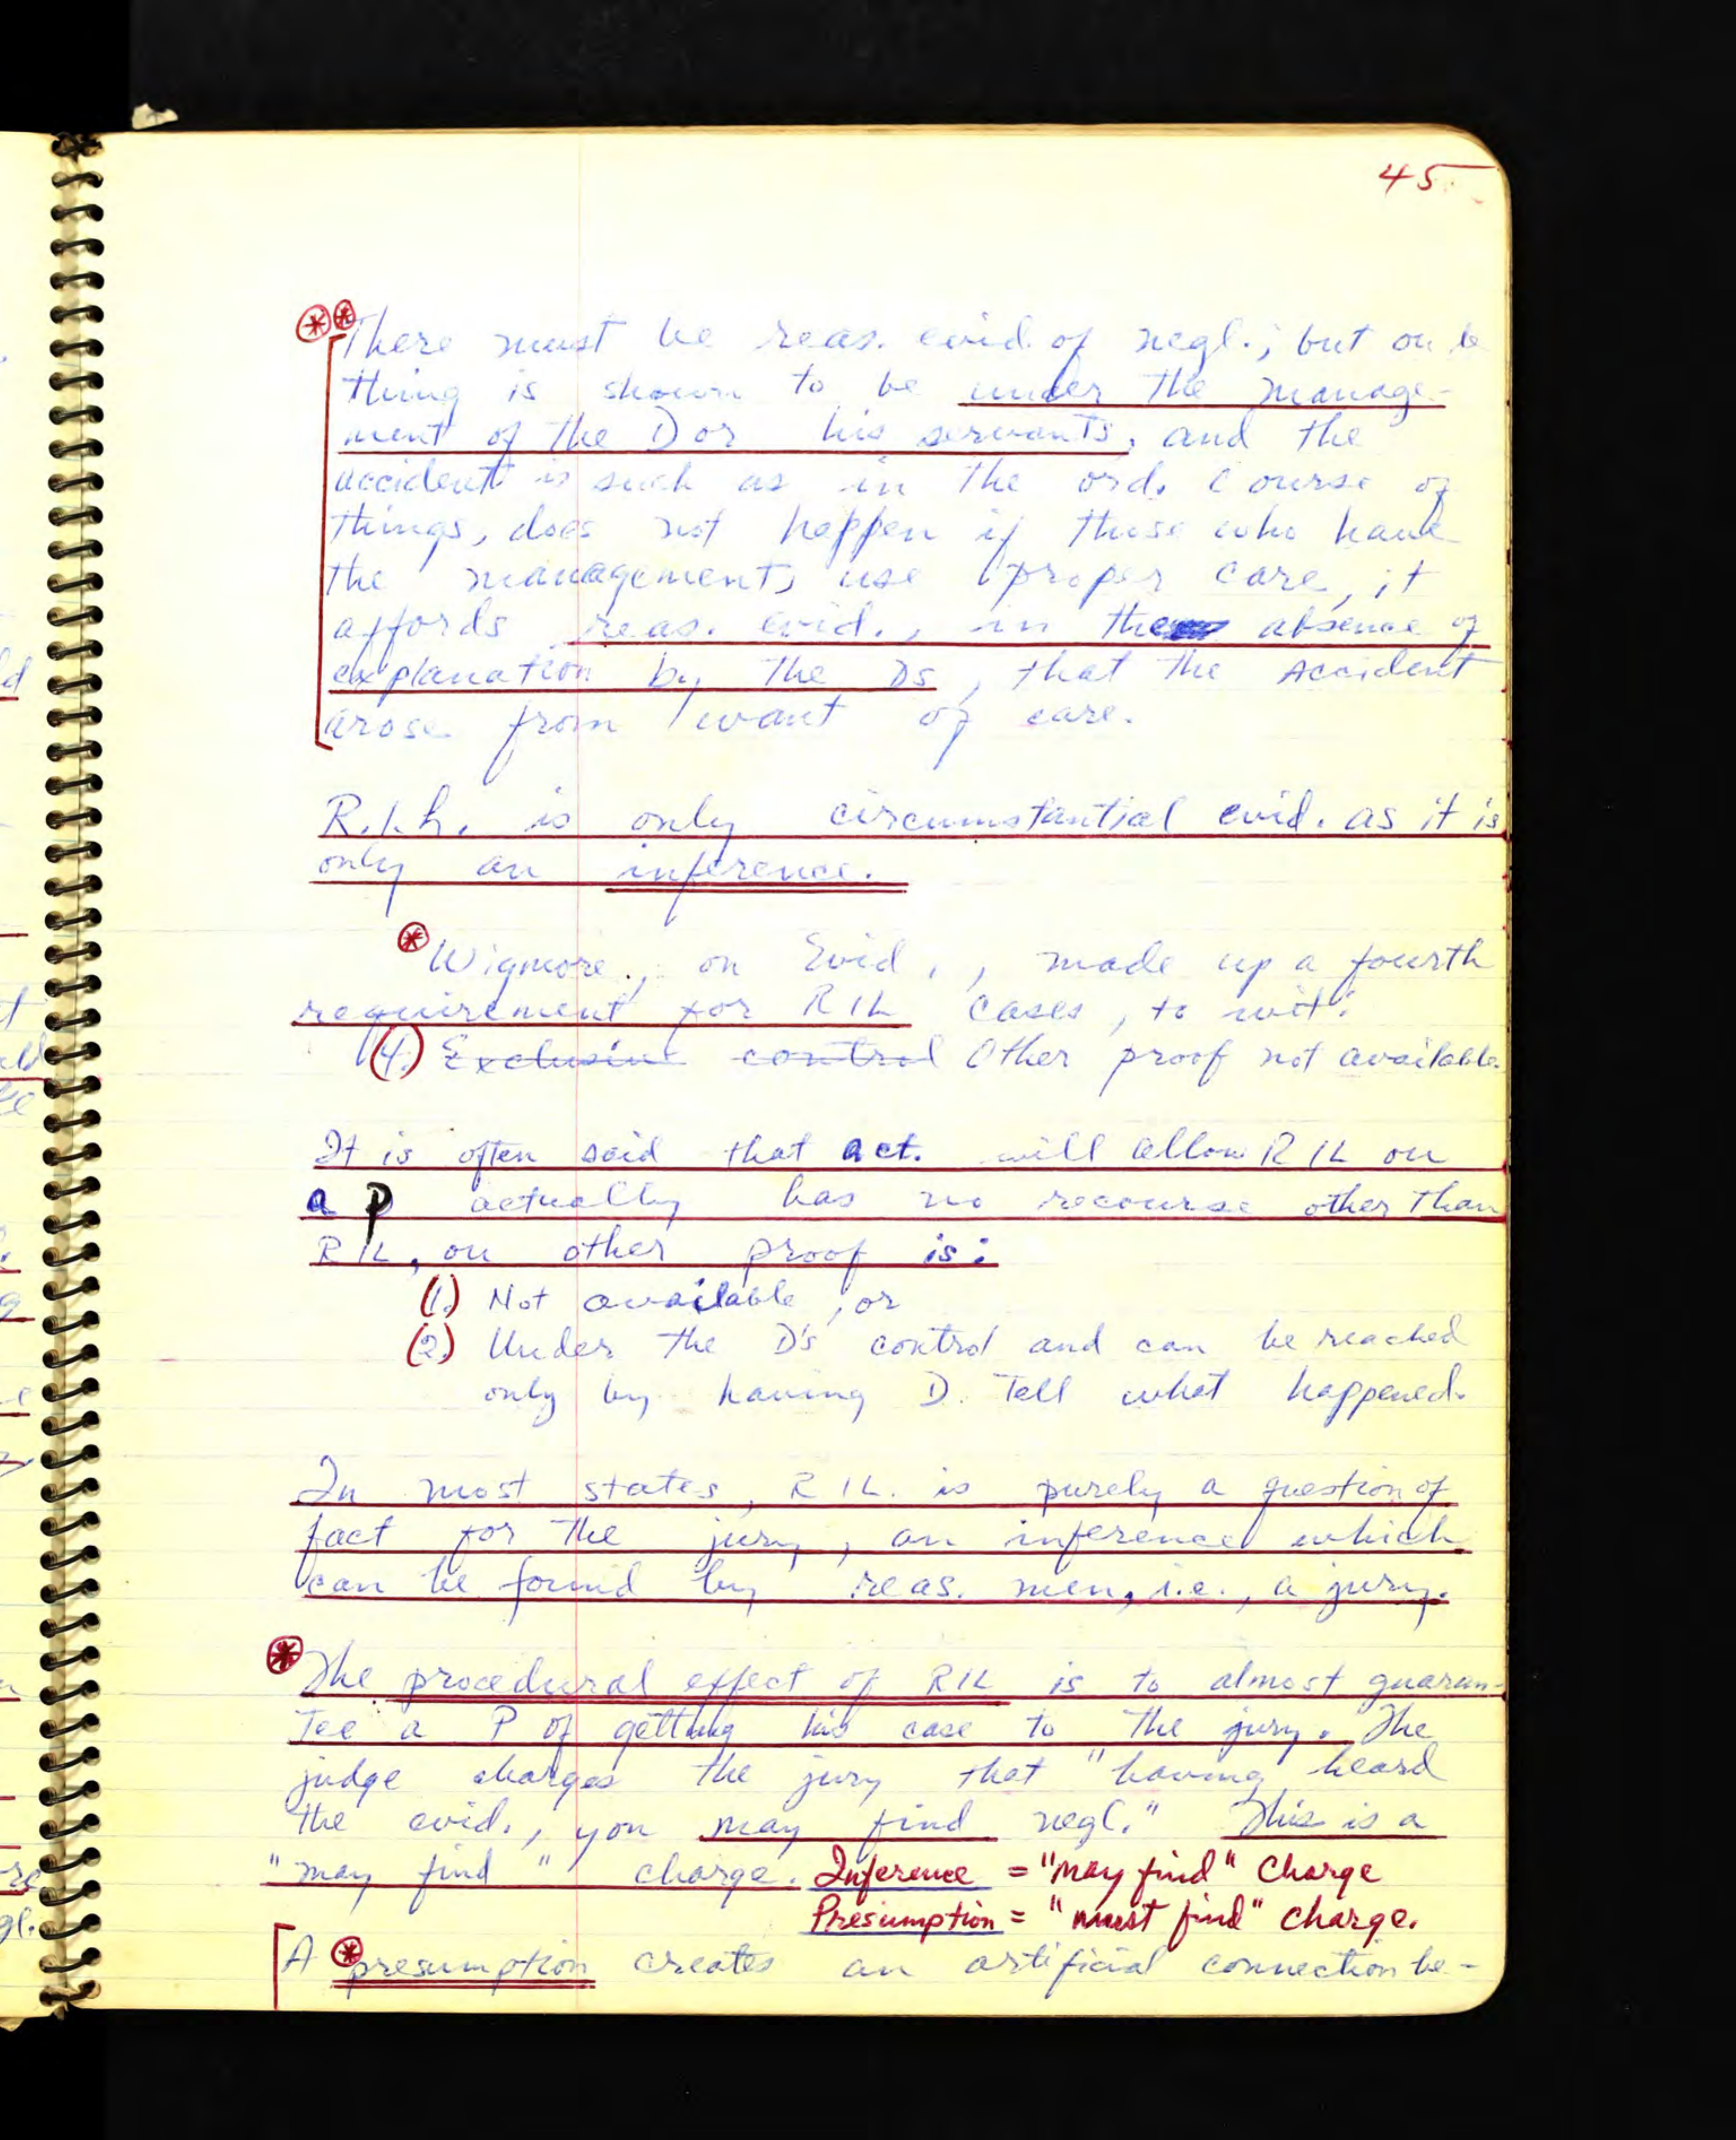 45
There must be reas. evid. of negl.; but on a
thing is shown to be under the manage-
ment of the D or his servants, and the
accident is such as in the ord. course of
things, does not happen if those who have
the management, use proper care, it
affords reas. evid., in the absence of
explanation by the Ds, that the Accident
arose from want of care.
R.I.L. is only circumstantial evid. as it is
only an inference.
Wigmore, on Evid., made up a fourth
requirement for RIL cases, to wit:
(4.) Exclusive control Other proof not available.
It is often said that a ct. will allow RIL on
a P actually has no recourse other than
RIL, on other proof is:
(1.) Not available, or
(2.) Under the D's control and can be reached
only by having D. Tell what happened.
In most states, RIL. is purely a question of
fact for the jury, an inference which
can be found by reas. men, i.e., a jury.
The procedural effect of RIL is to almost guaran-
Tee a P of getting his case to the jury. The
judge charges the jury that "having heard
the evid., you may find negl." This is a
"may find" charge. Inference = "may find" Charge
Presumption = "must find" charge.
A presumption creates an artificial connection be-